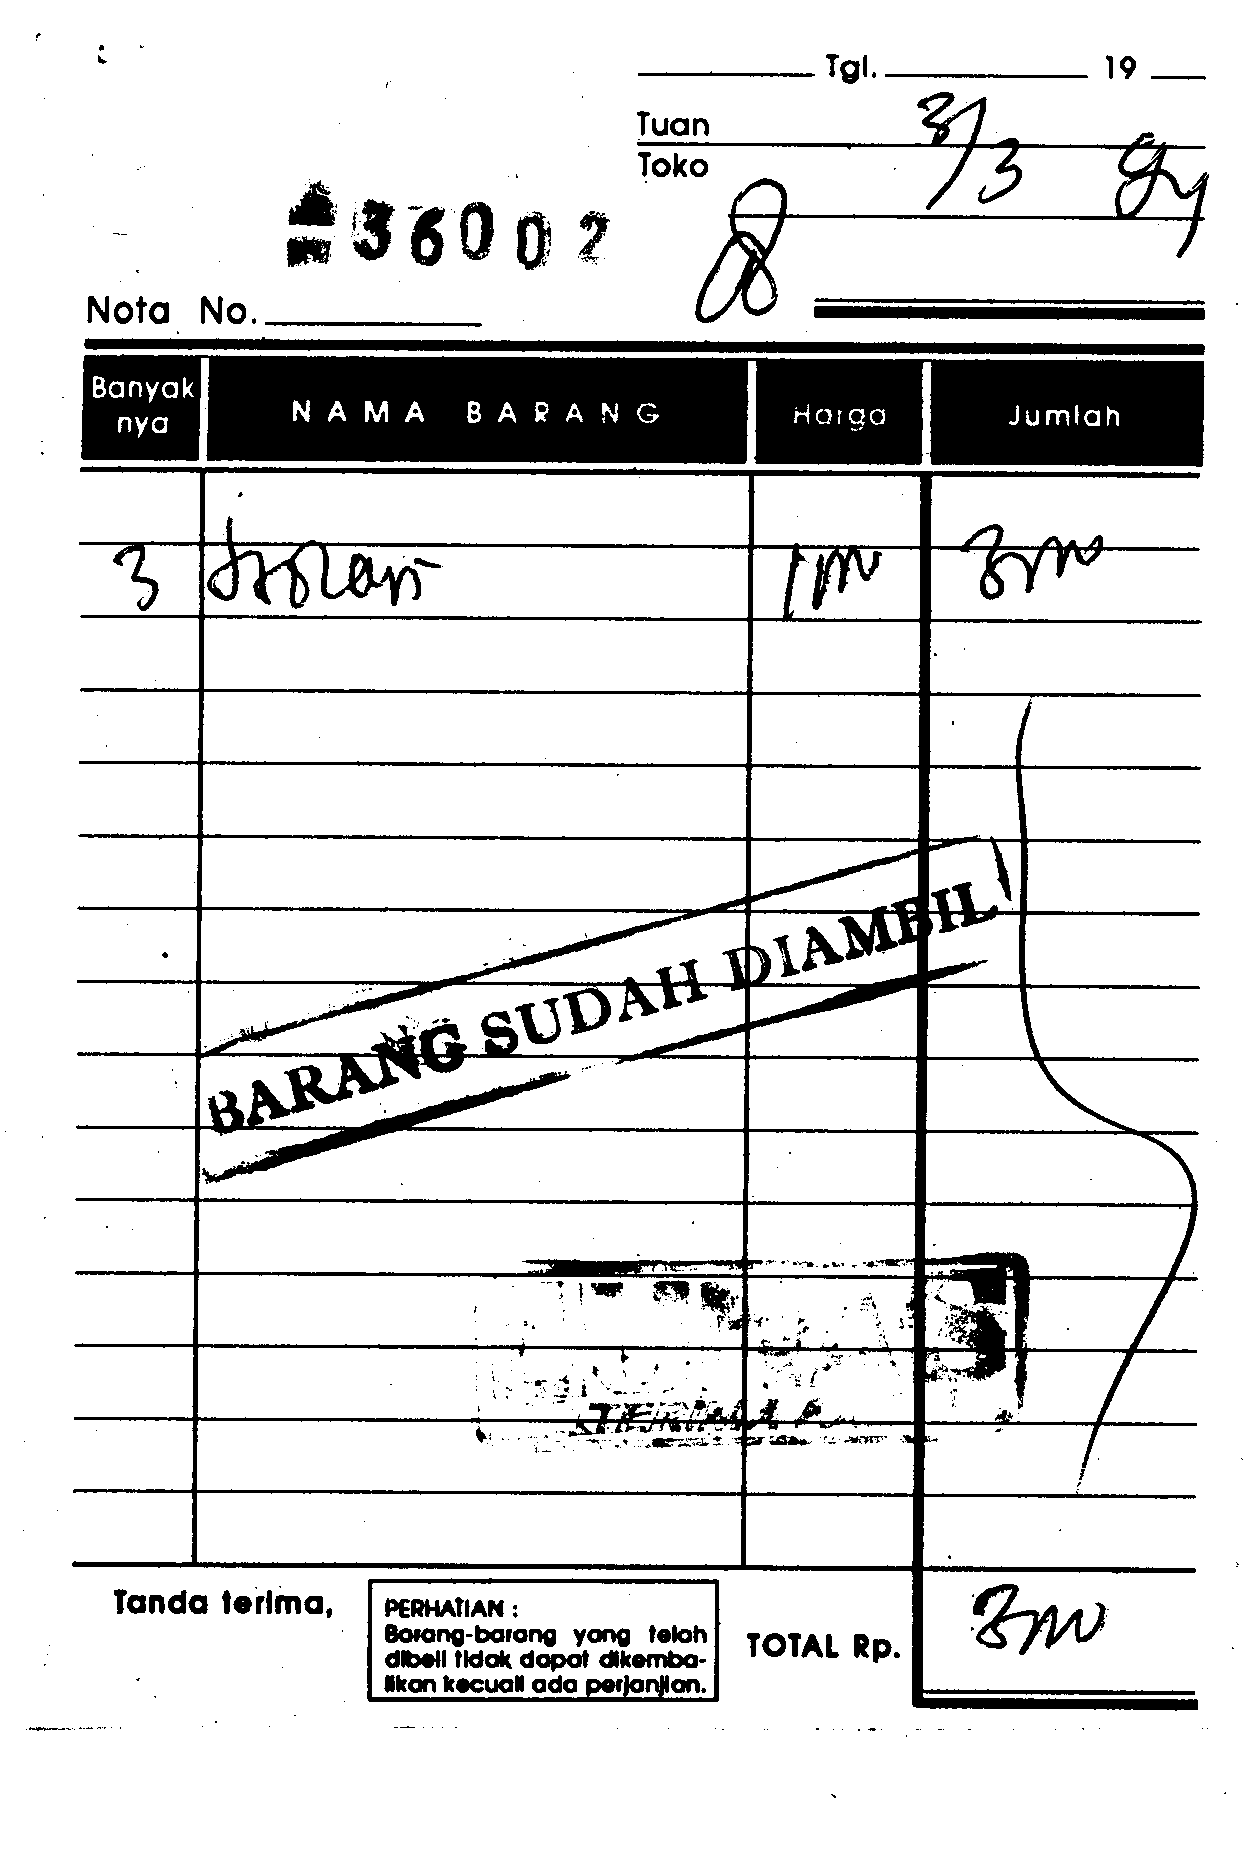 Tgl. 19
Tuan
Toko
3/3 94
36002
Nota No.
Banyak
nya
NAMA BARANG
Harga
Jumlah
3
BARANG SUDAH DIAMBIL
Tanda terima,
PERHATIAN :
Barang-barang yang telah
dibeli tidak dapat dikemba-
likan kecuali ada perjanjian.
TOTAL Rp.